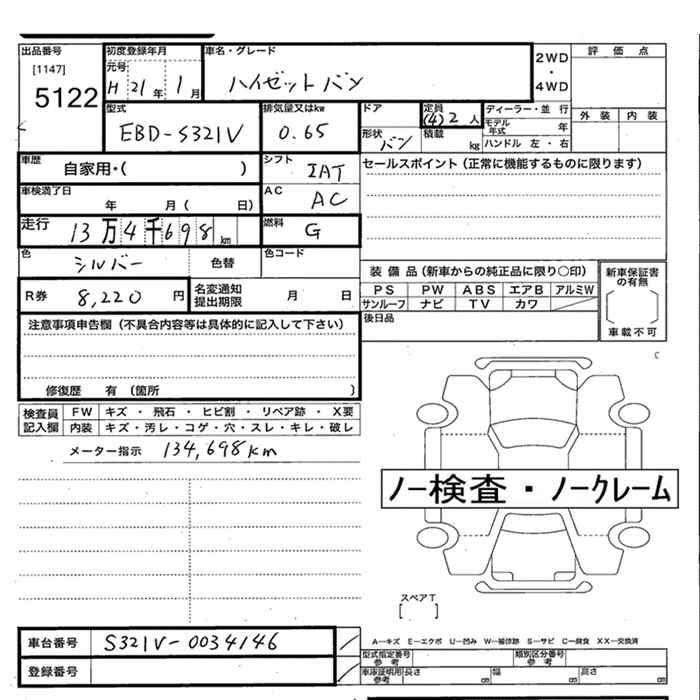 出品番号 初度登録年月 車名・グレード 2WD・4WD 評価点
[1147] 元号 ハイゼットバン
5122 H 21年 1月 外装 内装
型式 排気量又はkw ドア 定員 ディーラー・並行
EBD-S321V 0.65 (4) 2人 モデル年式 年
形状 バン 積載 kg ハンドル 左・右
車歴 自家用・( ) シフト IAT セールスポイント(正常に機能するものに限ります)
車検満了日 年 月( 日) AC AC
走行 13万4千698km 燃料 G
色 シルバー 色替 色コード
装備品(新車からの純正品に限り〇印) 新車保証書の有無
R券 8,220円 名変通知提出期限 月 日 PS PW ABS エアB アルミW
サンルーフ ナビ TV カワ
[ ] 車載不可
注意事項申告欄(不具合内容等は具体的に記入して下さい) 後日品
修復歴 有(箇所 )
検査員記入欄 FW キズ・飛石・ヒビ割・リペア跡・X要
内装 キズ・汚レ・コゲ・穴・スレ・キレ・破レ
メーター指示 134,698km
ノー検査・ノークレーム
スペアT
[ ]
車台番号 S321V-0034146
A―キズ E―エクボ U―凹み W―補修跡 S―サビ C―腐食 XX―交換済
登録番号
型式指定番号参考 類別区分番号参考
車庫証明用参考 長さ cm 幅 cm 高さ cm